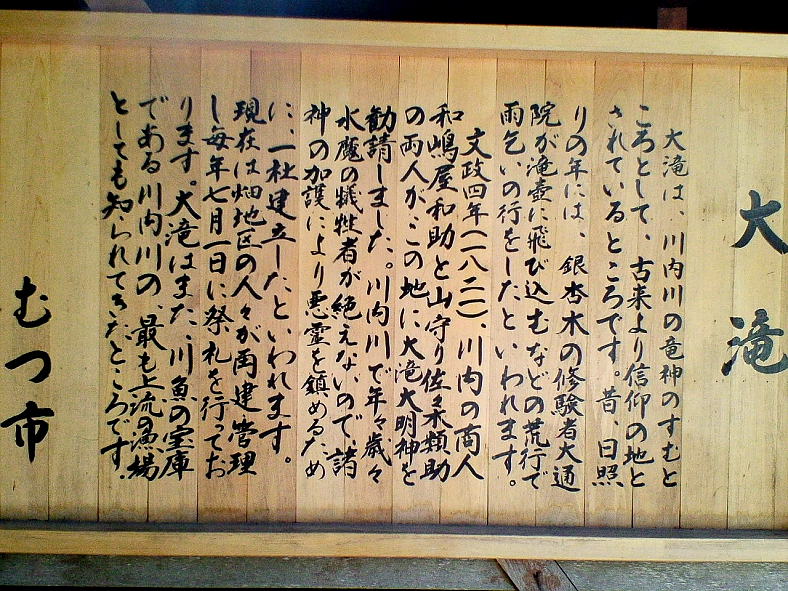 大滝
大滝は、川内川の竜神のすむと
ころとして、古来より信仰の地と
されているところです。昔、日照
りの年には、銀杏木の修験者大通
院が滝壺に飛び込むなどの荒行で
雨乞いの行をしたといわれます。
文政四年(一八二一)、川内の商人
和嶋屋和助と山守り佐々木類助
の両人が、この地に大滝大明神を
勧請しました。川内川で年々歳々
水魔の犠牲者が絶えないので、諸
神の加護により悪霊を鎮めるため
に、一社建立したといわれます。
現在は畑地区の人々が再建・管理
し毎年七月一日に祭礼を行ってお
ります。大滝はまた、川魚の宝庫
である川内川の、最も上流の漁場
としても知られてきたところです。
むつ市